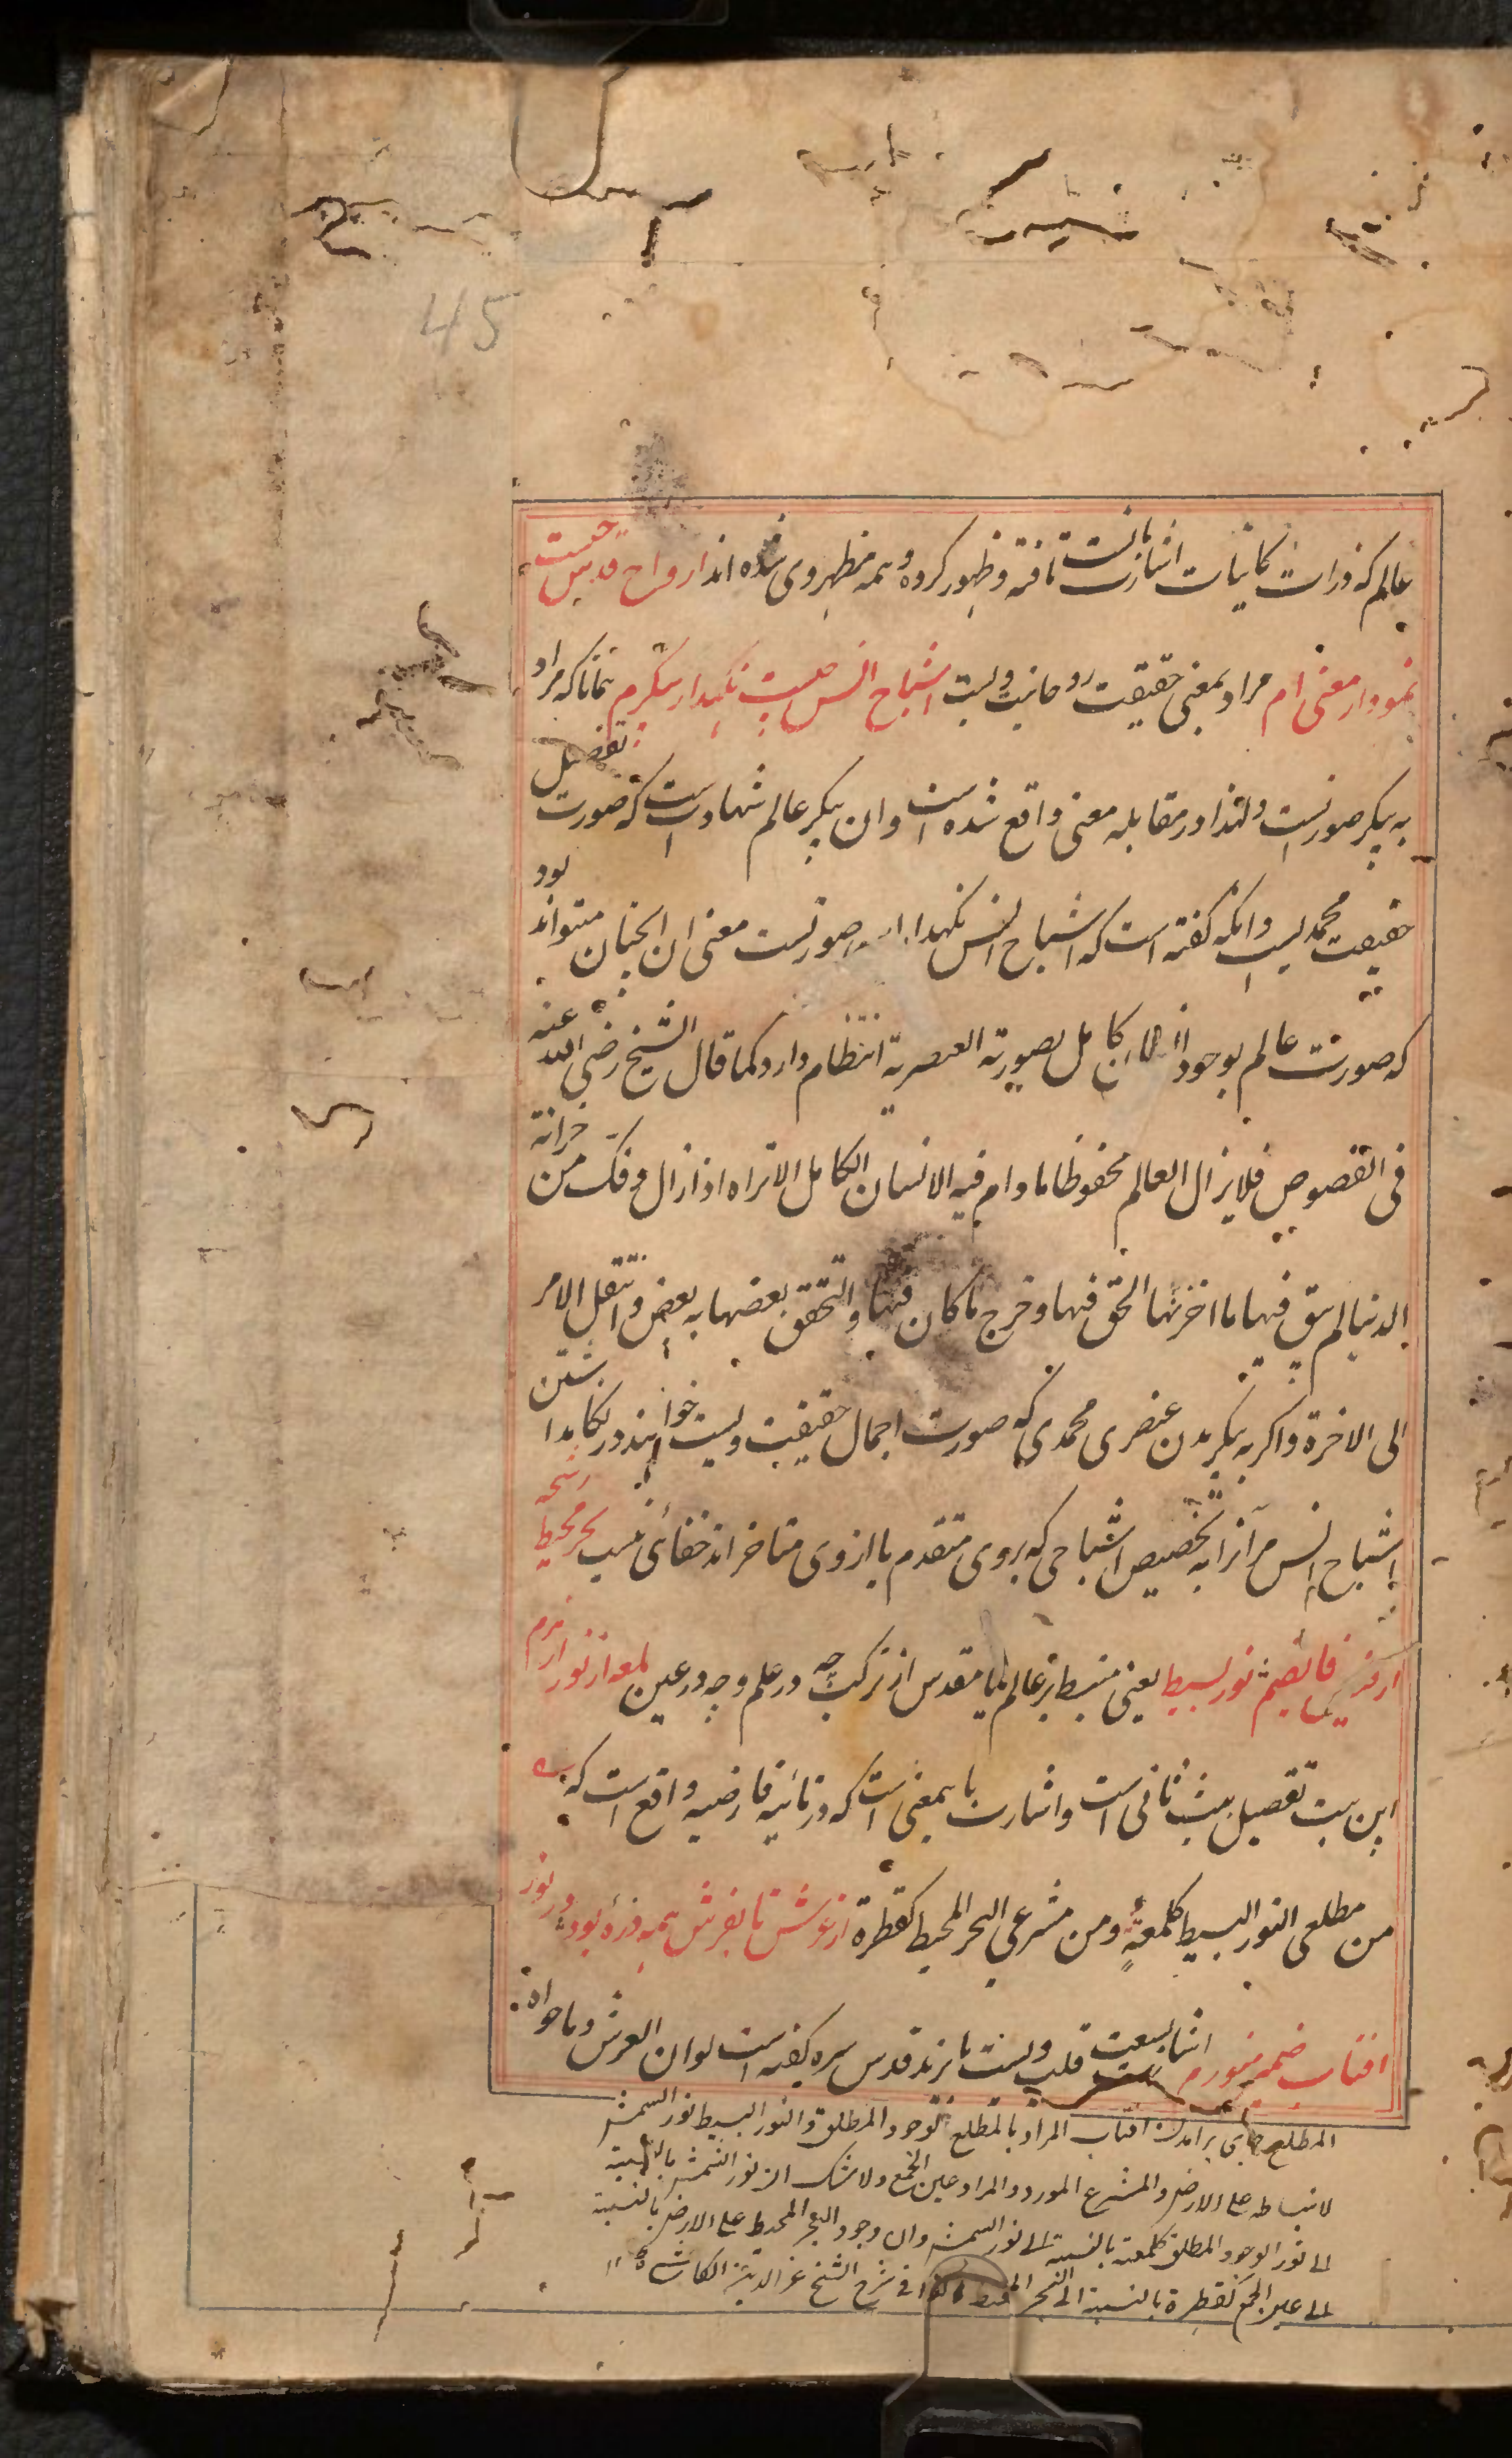 45
عالم که ذرات کاینات اشارت بآنست تافته و ظهور کرده و همه مظهر وی شده اند ارواح قدس چیست
نمودار معنی ام مراد بمعنی حقیقت روحانیت ویست اشباح انس چیست نگهدار پیکرم همانا که مراد
به پیکر صورتست ولهذا در مقابله معنی واقع شده است و ان پیکر عالم شهادت است که صورت تفصیل
حقیقت محمدیست و انکه کفته است که اشباح انس نکهدار صورتست معنی ان انچنان میتواند بود
که صورت عالم بوجود انسان کامل بصورته العنصریة انتظام دارد کما قال الشیخ رضی الله عنه
فی الفصوص فلا یزال العالم محفوظا ما دام فیه الانسان الکامل الا تراه اذا زال و فک من خزانة
الدنیا لم یبق فیها ما اختزنها الحق فیها و خرج ما کان فیها و التحق بعضها به بعض و انتقل الامر
الی الاخرة و اکر به پیکر بدن عنصری محمدی که صورت اجمال حقیقت ویست خواهند در نکاهداشتن
اشباح انس مر آنرا به تخصیص اشباحی که بروی متقدم یا ازوی متاخر اند خفائی نیست بحر محیط رشحه
از فیض فایضم نور بسیط یعنی منبسط بر عالم یا مقدس از ترکیب چه در علم و چه در عین لمعه از نور ازهرم
این بیت تفصیل بیت ثانی است و اشارت بآنمعنی است که در تائیه فارضیه واقع است که
من مطلعی النور البسیط کلمعةٍ و من مشرعی البحر المحیط کقطرة از عرش تا بفرش همه ذره بود در نور
افتاب ضمیر منورم اشارت بسعت قلب ویست بایزید قدس سره کفته است لو ان العرش و ما حواه
المطلع جای برامدن افتاب المراد بالمطلع الوجود المطلق و النور البسیط نور الشمس
لانبساطه علی الارض و المشرع المورد و المراد عین الجمع و لا شک ان نور الشمس بالنسبة
الی نور الوجود المطلق کلمعة بالنسبة الی نور الشمس و ان وجود البحر المحیط علی الارض بالنسبة
الی عین الجمع کقطرة بالنسبة الی البحر المحیط کذا فی شرح الشیخ عز الدین الکاشی